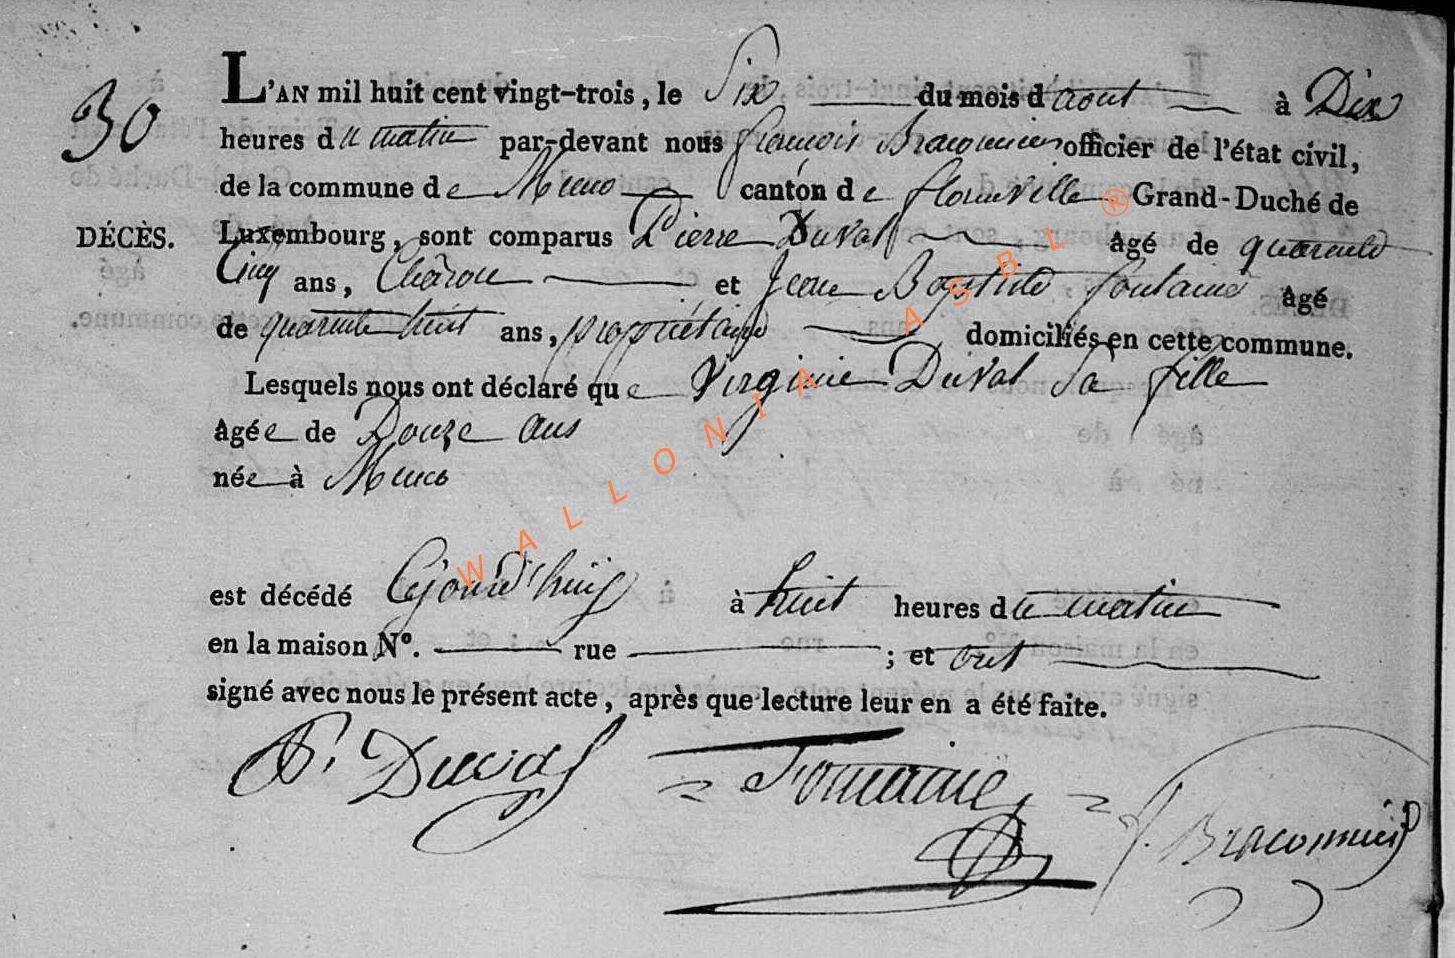 L'AN mil huit cent vingt-trois, le Six du mois d'aout à Dix
30 heures du matin par-devant nous françois Braconnier officier de l'état civil,
de la commune de Muno canton de florenville Grand-Duché de
DÉCÈS. Luxembourg, sont comparus Pierre Duval âgé de quarente
Cinq ans, Charon et Jean Baptiste fontaine âgé
de quarente huit ans, propriétaire domiciliés en cette commune.
Lesquels nous ont déclaré que Virginie Duval sa fille
âgée de Douze ans
née à Muno
est décédé Cejourd'huij à huit heures du matin
en la maison N°. rue ; et ont
signé avec nous le présent acte, après que lecture leur en a été faite.
P. Duval Fontaine f. Braconnier
WALLONIA ASBL ®